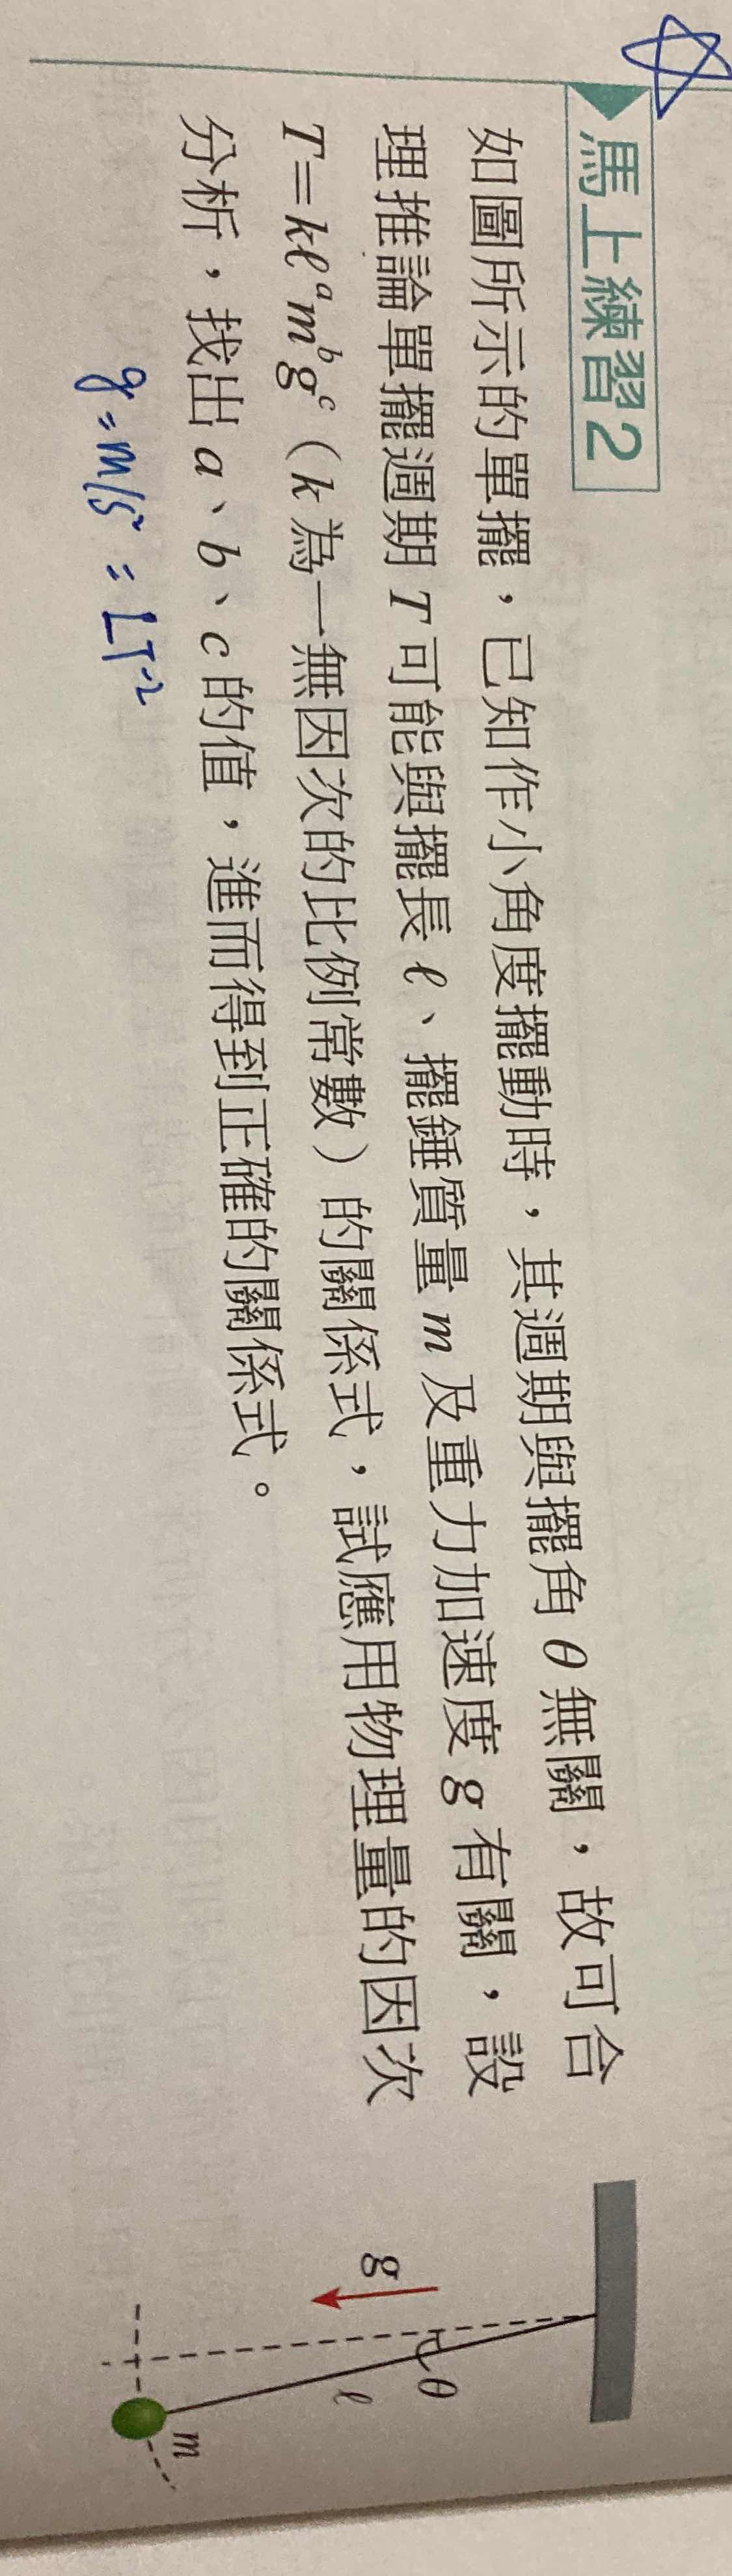 馬上練習2
如圖所示的單擺，已知作小角度擺動時，其週期與擺角θ無關，故可合
理推論單擺週期T可能與擺長ℓ、擺錘質量m及重力加速度g有關，設
T=kℓᵃmᵇgᶜ（k為一無因次的比例常數）的關係式，試應用物理量的因次
分析，找出a、b、c的值，進而得到正確的關係式。
g=m/s²=LT⁻²
g
θ
ℓ
m